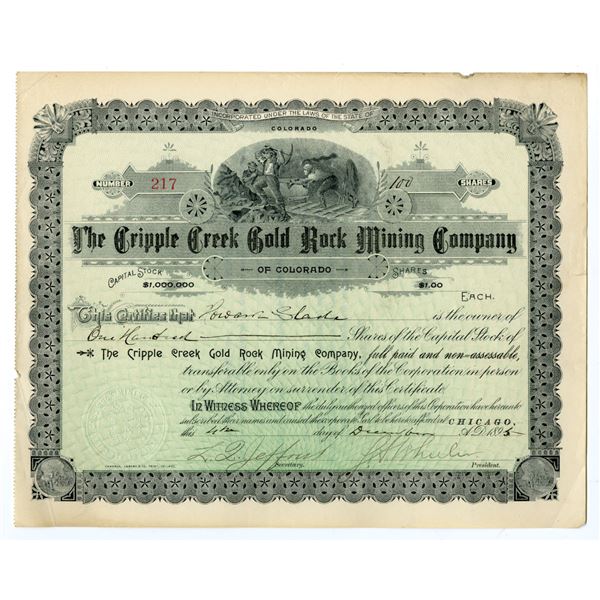 INCORPORATED UNDER THE LAWS OF THE STATE OF
COLORADO
NUMBER 217 100 SHARES
The Cripple Creek Gold Rock Mining Company
OF COLORADO
CAPITAL STOCK $1,000,000 SHARES $1.00 EACH.
This Certifies that Howard Slade is the owner of
One Hundred Shares of the Capital Stock of
The Cripple Creek Gold Rock Mining Company, full paid and non-assessable,
transferable only on the Books of the Corporation in person
or by Attorney on surrender of this Certificate.
IN WITNESS WHEREOF the duly authorized officers of this Corporation have hereunto
subscribed their names and caused the corporate Seal to be hereto affixed at CHICAGO,
this 4th day of December A.D. 1895
Secretary. President.